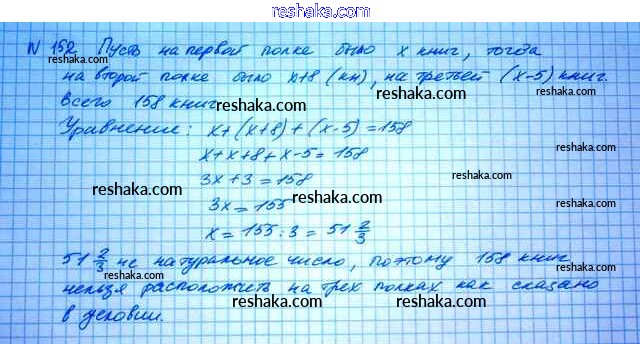 reshaka.com
N 152 Пусть на первой полке было x книг, тогда
на второй полке было x+8 (кн), на третьей (x-5) книг.
всего 158 книг reshaka.com reshaka.com
Уравнение: x+(x+8)+(x-5)=158
x+x+8+x-5=158 reshaka.com
3x+3=158
reshaka.com reshaka.com
3x=155
x=155:3=51 2/3
reshaka.com
51 2/3 не натуральное число, поэтому 158 книг
нельзя расположить на трех полках как сказано
reshaka.com reshaka.com
в условии.
reshaka.com